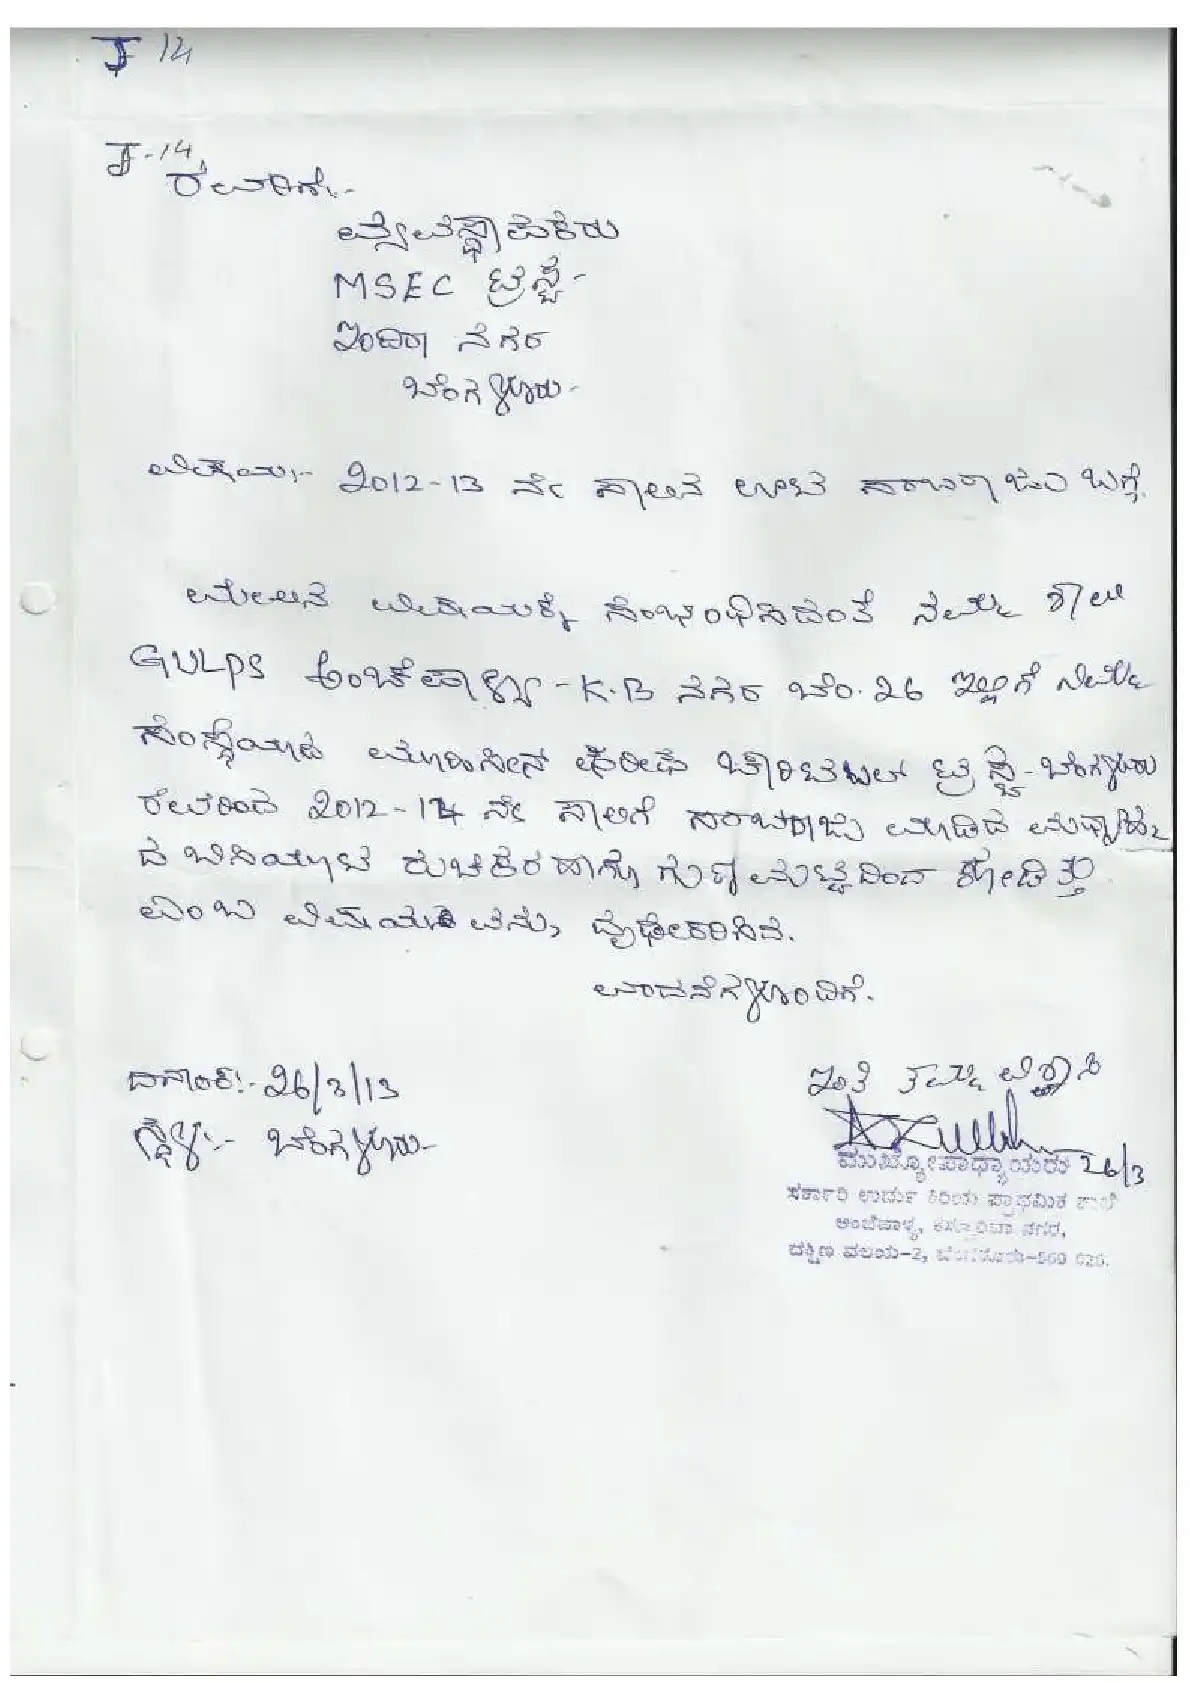 J 14
J-14
ರವರಿಗೆ:-
ವ್ಯವಸ್ಥಾಪಕರು
MSEC ಟ್ರಸ್ಟ್-
ಇಂದಿರಾ ನಗರ
ಬೆಂಗಳೂರು-
ವಿಷಯ:- 2012-13 ನೇ ಸಾಲಿನ ಊಟ ಸರಬರಾಜು ಬಗ್ಗೆ.
ಮೇಲಿನ ವಿಷಯಕ್ಕೆ ಸಂಭಂಧಿಸಿದಂತೆ ನಮ್ಮ ಶಾಲೆ
GULPS ಅಂಚೆಪಾಳ್ಯ-K.B ನಗರ ಬೆಂ.26 ಇಲ್ಲಿಗೆ ನಿಮ್ಮ
ಸಂಸ್ಥೆಯಾದ ಮೊಹಸೀನ್ ಷರೀಫ ಚಾರಿಟಬಲ್ ಟ್ರಸ್ಟ್-ಬೆಂಗಳೂರು
ರವರಿಂದ 2012-14 ನೇ ಸಾಲಿಗೆ ಸರಬರಾಜು ಮಾಡಿದ ಮಧ್ಯಾಹ್ನ
ದ ಬಿಸಿಯೂಟ ರುಚಿಕರ ಹಾಗೂ ಗುಣಮಟ್ಟದಿಂದ ಕೂಡಿತ್ತು
ಎಂಬ ವಿಷಯ ವನ್ನು ದೃಢೀಕರಿಸಿದೆ.
ವಂದನೆಗಳೊಂದಿಗೆ.
ದಿನಾಂಕ:- 26/3/13
ಸ್ಥಳ:- ಬೆಂಗಳೂರು-
ಇಂತಿ ತಮ್ಮ ವಿಶ್ವಾಸಿ
ಮುಖ್ಯೋಪಾಧ್ಯಾಯರು 26/3
ಸರ್ಕಾರಿ ಉರ್ದು ಕಿರಿಯ ಪ್ರಾಥಮಿಕ ಶಾಲೆ
ಅಂಚೆಪಾಳ್ಯ, ಕಸ್ತೂರಿಬಾ ನಗರ,
ದಕ್ಷಿಣ ವಲಯ-2, ಬೆಂಗಳೂರು-560 026.